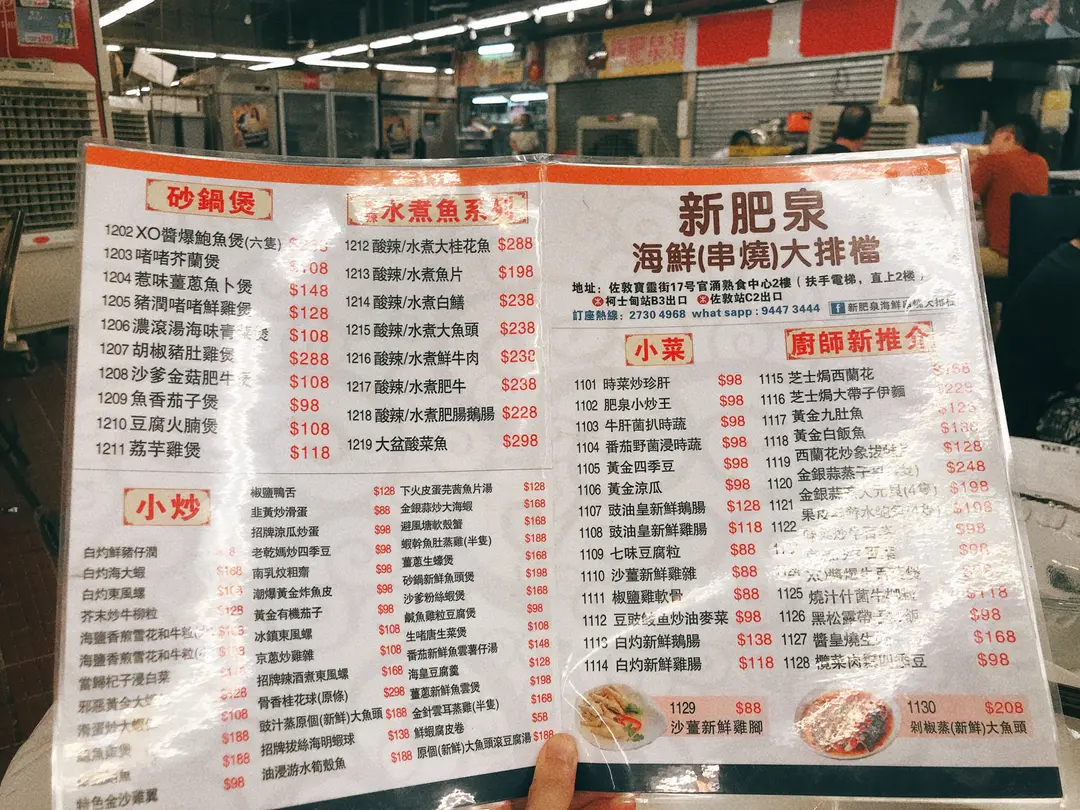 砂鍋煲
1202 XO醬爆鮑魚煲(六隻)
1203 啫啫芥蘭煲 $108
1204 惹味薑蔥魚卜煲 $148
1205 豬潤啫啫鮮雞煲 $128
1206 濃滾湯海味 煲 $108
1207 胡椒豬肚雞煲 $288
1208 沙爹金菇肥牛煲 $108
1209 魚香茄子煲 $98
1210 豆腐火腩煲 $108
1211 荔芋雞煲 $118
水煮魚系列
1212 酸辣/水煮大桂花魚 $288
1213 酸辣/水煮魚片 $198
1214 酸辣/水煮白鱔 $238
1215 酸辣/水煮大魚頭 $238
1216 酸辣/水煮鮮牛肉 $238
1217 酸辣/水煮肥牛 $238
1218 酸辣/水煮肥腸鵝腸 $228
1219 大盆酸菜魚 $298
小炒
白灼鮮豬仔潤
白灼海大蝦 $168
白灼東風螺
芥末炒牛柳粒 $128
海鹽香煎雪花和牛粒
海鹽香煎雪花和牛粒
當歸杞子浸白菜
邪惡黃金大
滑蛋炒大蝦 $108
$188
$188
特色金沙雞翼 $98
椒鹽鴨舌 $128
韭黃炒滑蛋 $88
招牌涼瓜炒蛋 $98
老乾媽炒四季豆 $98
南乳炆粗齋 $98
潮爆黃金炸魚皮 $98
黃金有機茄子 $98
冰鎮東風螺 $108
京蔥炒雞雜 $108
招牌辣酒煮東風螺 $168
骨香桂花球(原條) $298
豉汁蒸原個(新鮮)大魚頭 $188
招牌拔絲海明蝦球 $138
油漫游水筍殼魚 $188
下火皮蛋芫茜魚片湯 $128
金銀蒜炒大海蝦 $168
避風塘軟殼蟹 $168
蝦幹魚肚蒸雞(半隻) $188
薑蔥生蠔煲 $168
砂鍋新鮮魚頭煲 $198
沙爹粉絲蝦煲 $168
鹹魚雞粒豆腐煲 $98
生啫唐生菜煲 $108
番茄新鮮魚雲薯仔湯 $148
海皇豆腐羹 $128
薑蔥新鮮魚雲煲 $198
金針雲耳蒸雞(半隻) $168
鮮蝦腐皮卷 $58
原個(新鮮)大魚頭滾豆腐湯 $188
新肥泉
海鮮(串燒)大排檔
地址：佐敦寶靈街17號官涌熟食中心2樓（扶手電梯，直上2樓）
柯士甸站B3出口 佐敦站C2出口
訂座熱線：2730 4968 what sapp : 9447 3444 f 新肥泉海鮮串燒大排檔
小菜
1101 時菜炒珍肝 $98
1102 肥泉小炒王 $98
1103 牛肝菌扒時蔬 $98
1104 番茄野菌浸時蔬 $98
1105 黃金四季豆 $98
1106 黃金涼瓜 $98
1107 豉油皇新鮮鵝腸 $128
1108 豉油皇新鮮雞腸 $118
1109 七味豆腐粒 $88
1110 沙薑新鮮雞雜 $88
1111 椒鹽雞軟骨 $88
1112 豆豉鯪魚炒油麥菜 $98
1113 白灼新鮮鵝腸 $138
1114 白灼新鮮雞腸 $118
廚師新推介
1115 芝士焗西蘭花
1116 芝士焗大帶子伊麵 $228
1117 黃金九肚魚
1118 黃金白飯魚
1119 西蘭花炒象拔蚌 $128
1120 金銀蒜蒸子 $248
1121 $198
1122 $108
$98
$98
1125 燒汁什菌牛 $118
1126 黑松露帶 $98
1127 醬皇燒生 $168
1128 欖菜肉鬆四季豆 $98
1129 $88
沙薑新鮮雞腳
1130 $208
剁椒蒸(新鮮)大魚頭